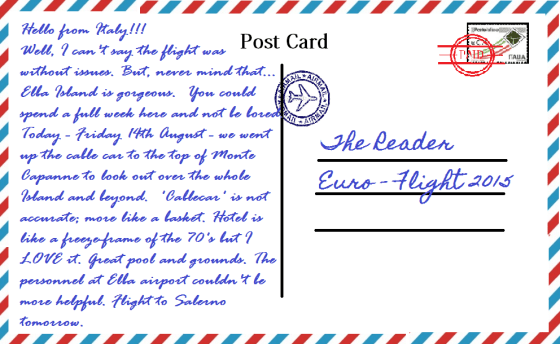 Hello from Italy!!!
Well, I can't say the flight was
without issues. But, never mind that...
Elba Island is gorgeous. You could
spend a full week here and not be bored.
Today - Friday 14th August - we went
up the cable car to the top of Monte
Capanne to look out over the whole
Island and beyond. 'Cablecar' is not
accurate; more like a basket. Hotel is
like a freeze-frame of the 70's but I
LOVE it. Great pool and grounds. The
personnel at Elba airport couldn't be
more helpful. Flight to Salerno
tomorrow.
Post Card
PAID
ITALIA
AIRMAIL AIRMAIL AIRMAIL AIRMAIL
The Reader
Euro-Flight 2015